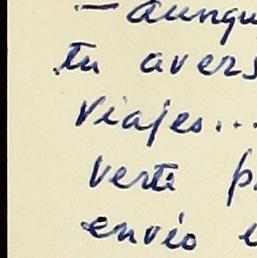 — aunqu
tu avers
viajes...
verte p
envío e